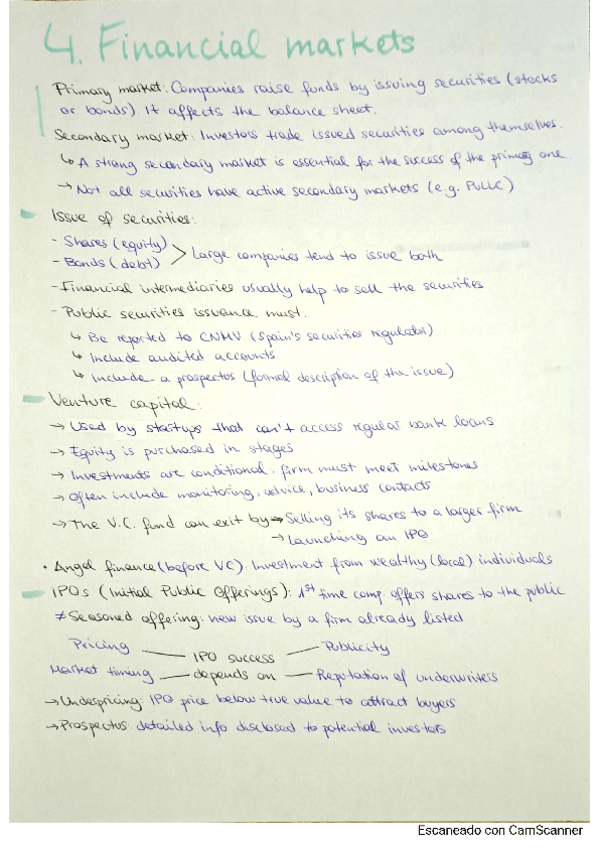 4. Financial markets
Primary market: Companies raise funds by issuing securities (stocks
or bonds). It affects the balance sheet.
Secondary market: Investors trade issued securities among themselves.
↳ A strong secondary market is essential for the success of the primary one.
→ Not all securities have active secondary markets (e.g. PyLLC)
Issue of securities:
- Shares (equity)
- Bonds (debt) > Large companies tend to issue both
- Financial intermediaries usually help to sell the securities
- Public securities issuance must:
↳ Be reported to CNMV (Spain's securities regulator)
↳ Include audited accounts
↳ Include a prospectus (formal description of the issue)
Venture capital:
→ Used by startups that can't access regular bank loans
→ Equity is purchased in stages
→ Investments are conditional: firm must meet milestones
→ Often include monitoring, advice, business contacts
→ The V.C. fund can exit by → Selling its shares to a larger firm
→ Launching an IPO
• Angel finance (before VC). Investment from wealthy (local) individuals
IPOs (Initial Public Offerings): 1st time comp. offers shares to the public
≠ Seasoned offering: new issue by a firm already listed
Pricing — IPO success — Publicity
Market timing — depends on — Reputation of underwriters
→ Underpricing: IPO price below true value to attract buyers
→ Prospectus: detailed info disclosed to potential investors
Escaneado con CamScanner